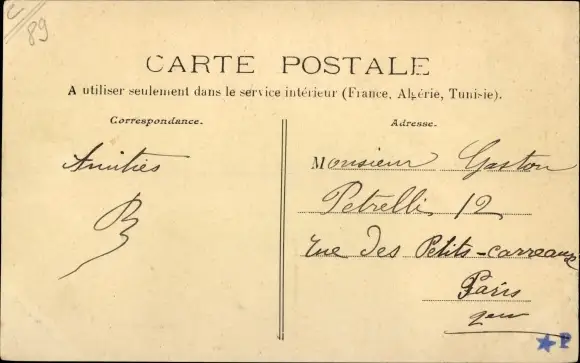 89
CARTE POSTALE
A utiliser seulement dans le service intérieur (France, Algérie, Tunisie).
Correspondance.
Adresse.
Amitiés
B
Monsieur Gaston
Petrelli 12
rue des Petits-carreaux
Paris
P